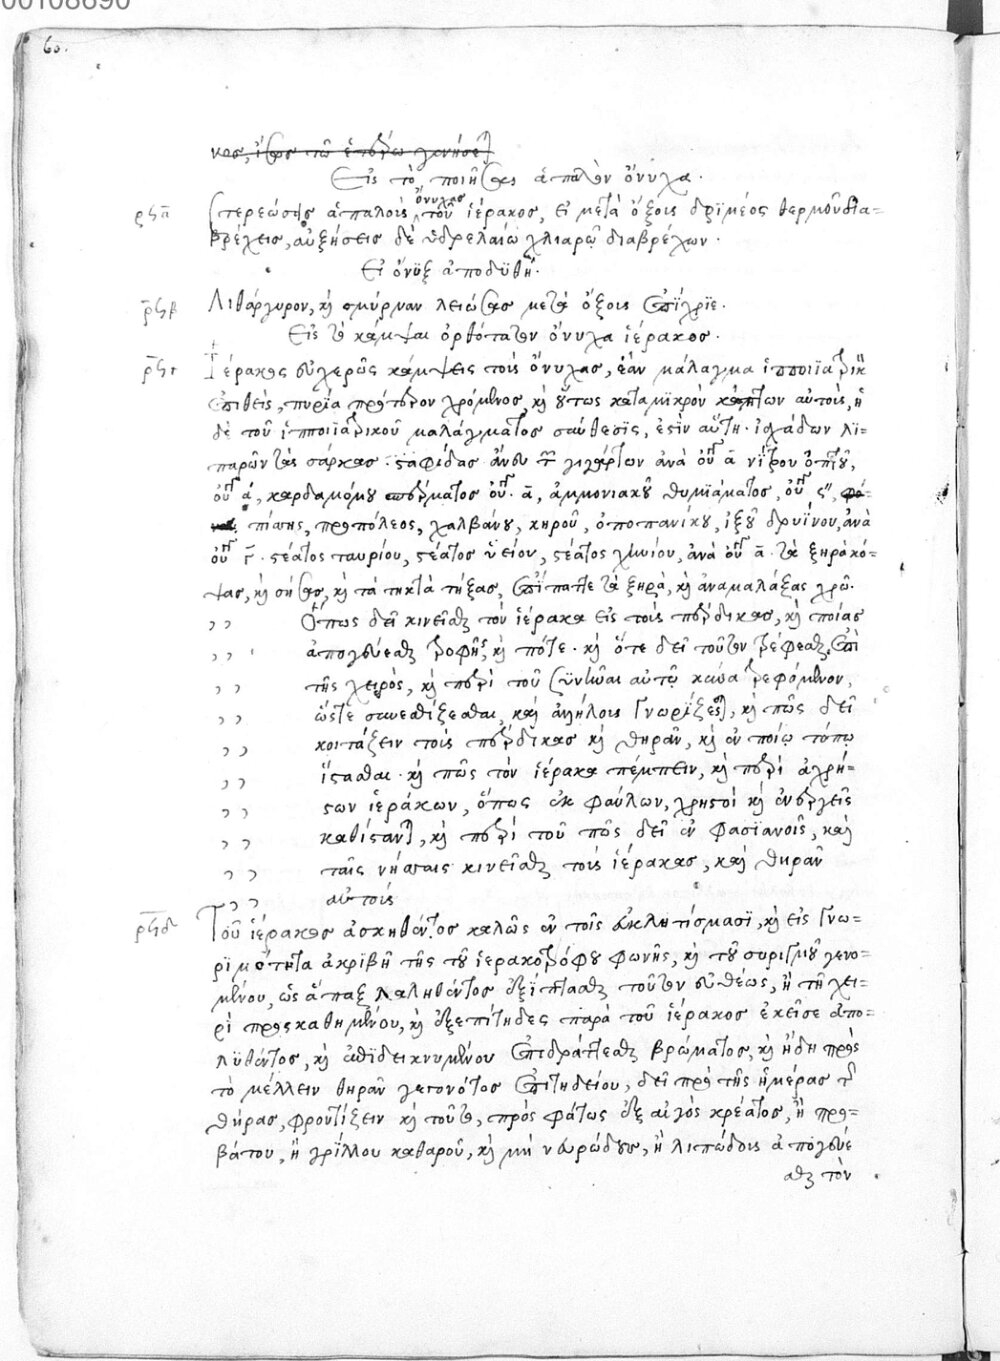 00108690
60.
Εἰς τὸ ποιῆσαι ἁπαλὸν ὄνυχα.
ρϟα Στερεώσεις ἁπαλοὺς ὄνυχας τοῦ ἱέρακος, εἰ μετὰ ὄξους δριμέος θερμοῦ δια-
βρέχεις, αὐξήσεις δὲ ὑδρελαίῳ χλιαρῷ διαβρέχων.
Εἰ ὄνυξ ἀποδυθῇ.
ρϟβ Λιθάργυρον, καὶ σμύρναν λειώσας μετὰ ὄξους ἐπίχριε.
Εἰς τὸ κάμψαι ὀρθότατον ὄνυχα ἱέρακος.
ρϟγ Ἱέρακος εὐχερῶς κάμψεις τοὺς ὄνυχας, ἐὰν μάλαγμα ἱπποϊατρικὸν
ἐπιθεὶς, πυρίᾳ πρότερον χρόμενος, καὶ οὕτως κατὰ μικρὸν κάμπτων αὐτοὺς, ἡ
δὲ τοῦ ἱπποϊατρικοῦ μαλάγματος σύνθεσις, ἐστὶν αὕτη. ἰσχάδων λι-
παρῶν τὰς σάρκας. σταφίδας ἄνευ τῶν γιγάρτων ἀνὰ οὐγγ. α νίτρου ὀπτοῦ,
οὐγγ. α, καρδαμόμου σπέρματος οὐγγ. α, ἀμμονιακοῦ θυμιάματος, οὐγγ. ς,
πίσσης, προπόλεος, χαλβάνου, κηροῦ, ὀποπανίκου, ἰξοῦ δρυΐνου, ἀνὰ
οὐγγ. γ. στέατος ταυρίου, στέατος ὑείου, στέατος χηνίου, ἀνὰ οὐγγ. α. τὰ ξηρὰ κό-
ψας, καὶ σήσας, καὶ τὰ τηκτὰ τήξας, ἐπίπαττε τὰ ξηρὰ, καὶ ἀναμαλάξας χρῶ.
,, Ὅπως δεῖ κινεῖσθαι τὸν ἱέρακα εἰς τοὺς πέρδικας, καὶ ποίας
,, ἀπογεύεσθαι τροφῆς, καὶ πότε. καὶ ὅτε δεῖ τοῦτον τρέφεσθαι ἐπὶ
,, τῆς χειρὸς, καὶ περὶ τοῦ συνεῖναι αὐτῷ κύνα τρεφόμενον,
,, ὥστε συνεθίζεσθαι, καὶ ἀλλήλους γνωρίζεσθαι, καὶ πῶς δεῖ
,, κοιτάζειν τοὺς πέρδικας καὶ θηρᾶν, καὶ ἐν ποίῳ τόπῳ
,, ἵστασθαι. καὶ πῶς τὸν ἱέρακα πέμπειν, καὶ περὶ ἀχρή-
,, στων ἱεράκων, ὅπως ἐκ φαύλων, χρηστοὶ καὶ ἐνεργεῖς
,, καθίστανται, καὶ περὶ τοῦ πῶς δεῖ ἐν φασϊανοῖς, καὶ
,, ταῖς νήσσαις κινεῖσθαι τοὺς ἱέρακας, καὶ θηρᾶν
,, αὐτοὺς
ρϟδ Τοῦ ἱέρακος ἀσκηθέντος καλῶς ἐν τοῖς ἐκλητίσμασϊ, καὶ εἰς γνω-
ριμότητα ἀκριβῆ τῆς τοῦ ἱερακοτρόφου φωνῆς, καὶ τοῦ συριγμοῦ γενο-
μένου, ὡς ἅπαξ καληθέντος ἐξίπτασθαι τοῦτον εὐθέως, ἢ τῇ χει-
ρὶ προσκαθημένου, καὶ ἐξεπίτηδες παρὰ τοῦ ἱέρακος ἐκεῖσε ἀπο-
λυθέντος, καὶ ὑποδεικνυμένου ἐπιδράττεσθαι βρώματος, καὶ ἤδη πρὸς
τὸ μέλλειν θηρᾶν γεγονότος ἐπιτηδείου, δεῖ πρὸ τῆς ἡμέρας τῆς
θήρας, φροντίζειν καὶ τοῦτο, πρὸς φάτως ἐξ αἰγὸς κρέατος, ἢ προ-
βάτου, ἢ χρίλλου καθαροῦ, καὶ μὴ νευρώδους, ἢ λιπώδους ἀπογεύε
σθαι τὸν